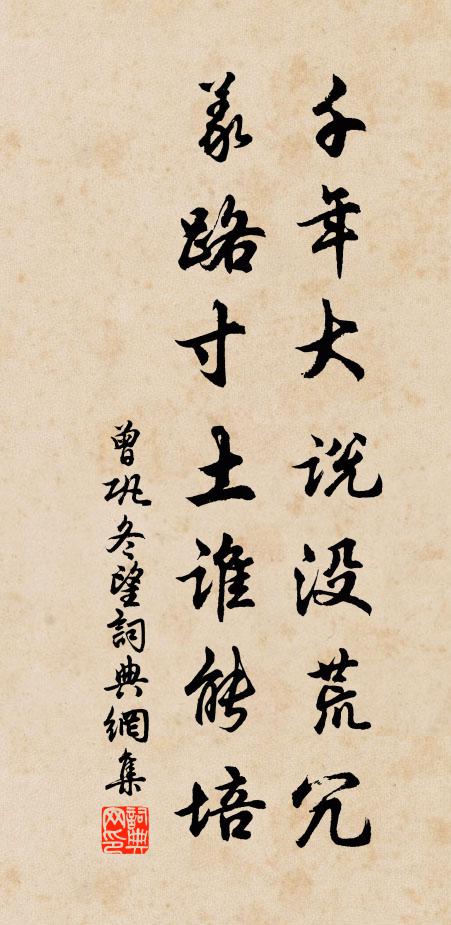 千年大说没荒冗
义路寸土谁能培
曾巩冬望词典网集
词典网印